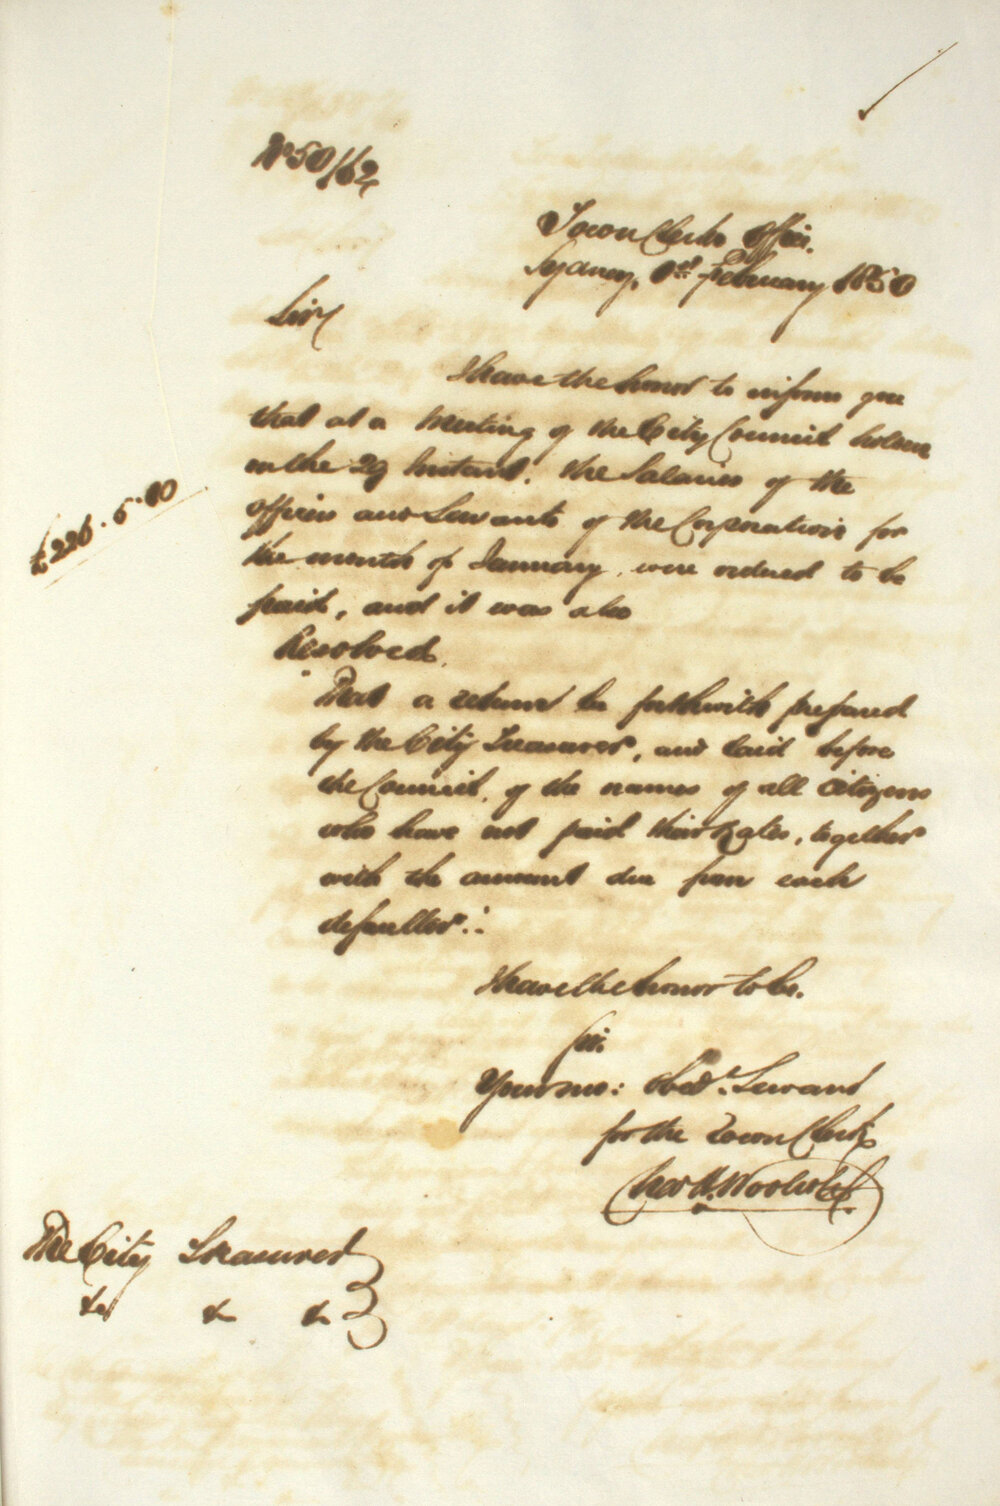 No 50/62
Town Clerks Office.
Sydney, 1st February 1850
Sir
I have the honor to inform you
that at a Meeting of the City Council holden
on the 29 Instant. the Salaries of the
Officers and Servants of the Corporation for
the month of January, were ordered to be
paid, and it was also
£226.5.10
Resolved.
That a return be forthwith prepared
by the City Treasurer, and laid before
the Council, of the names of all Citizens
who have not paid their Rates, together
with the amount due from each
defaulter.
I have the honor to be.
Sir.
Your mo: Obed. Servant
for the Town Clerk
Chas H. Woolcott
The City Treasurer
&c & &